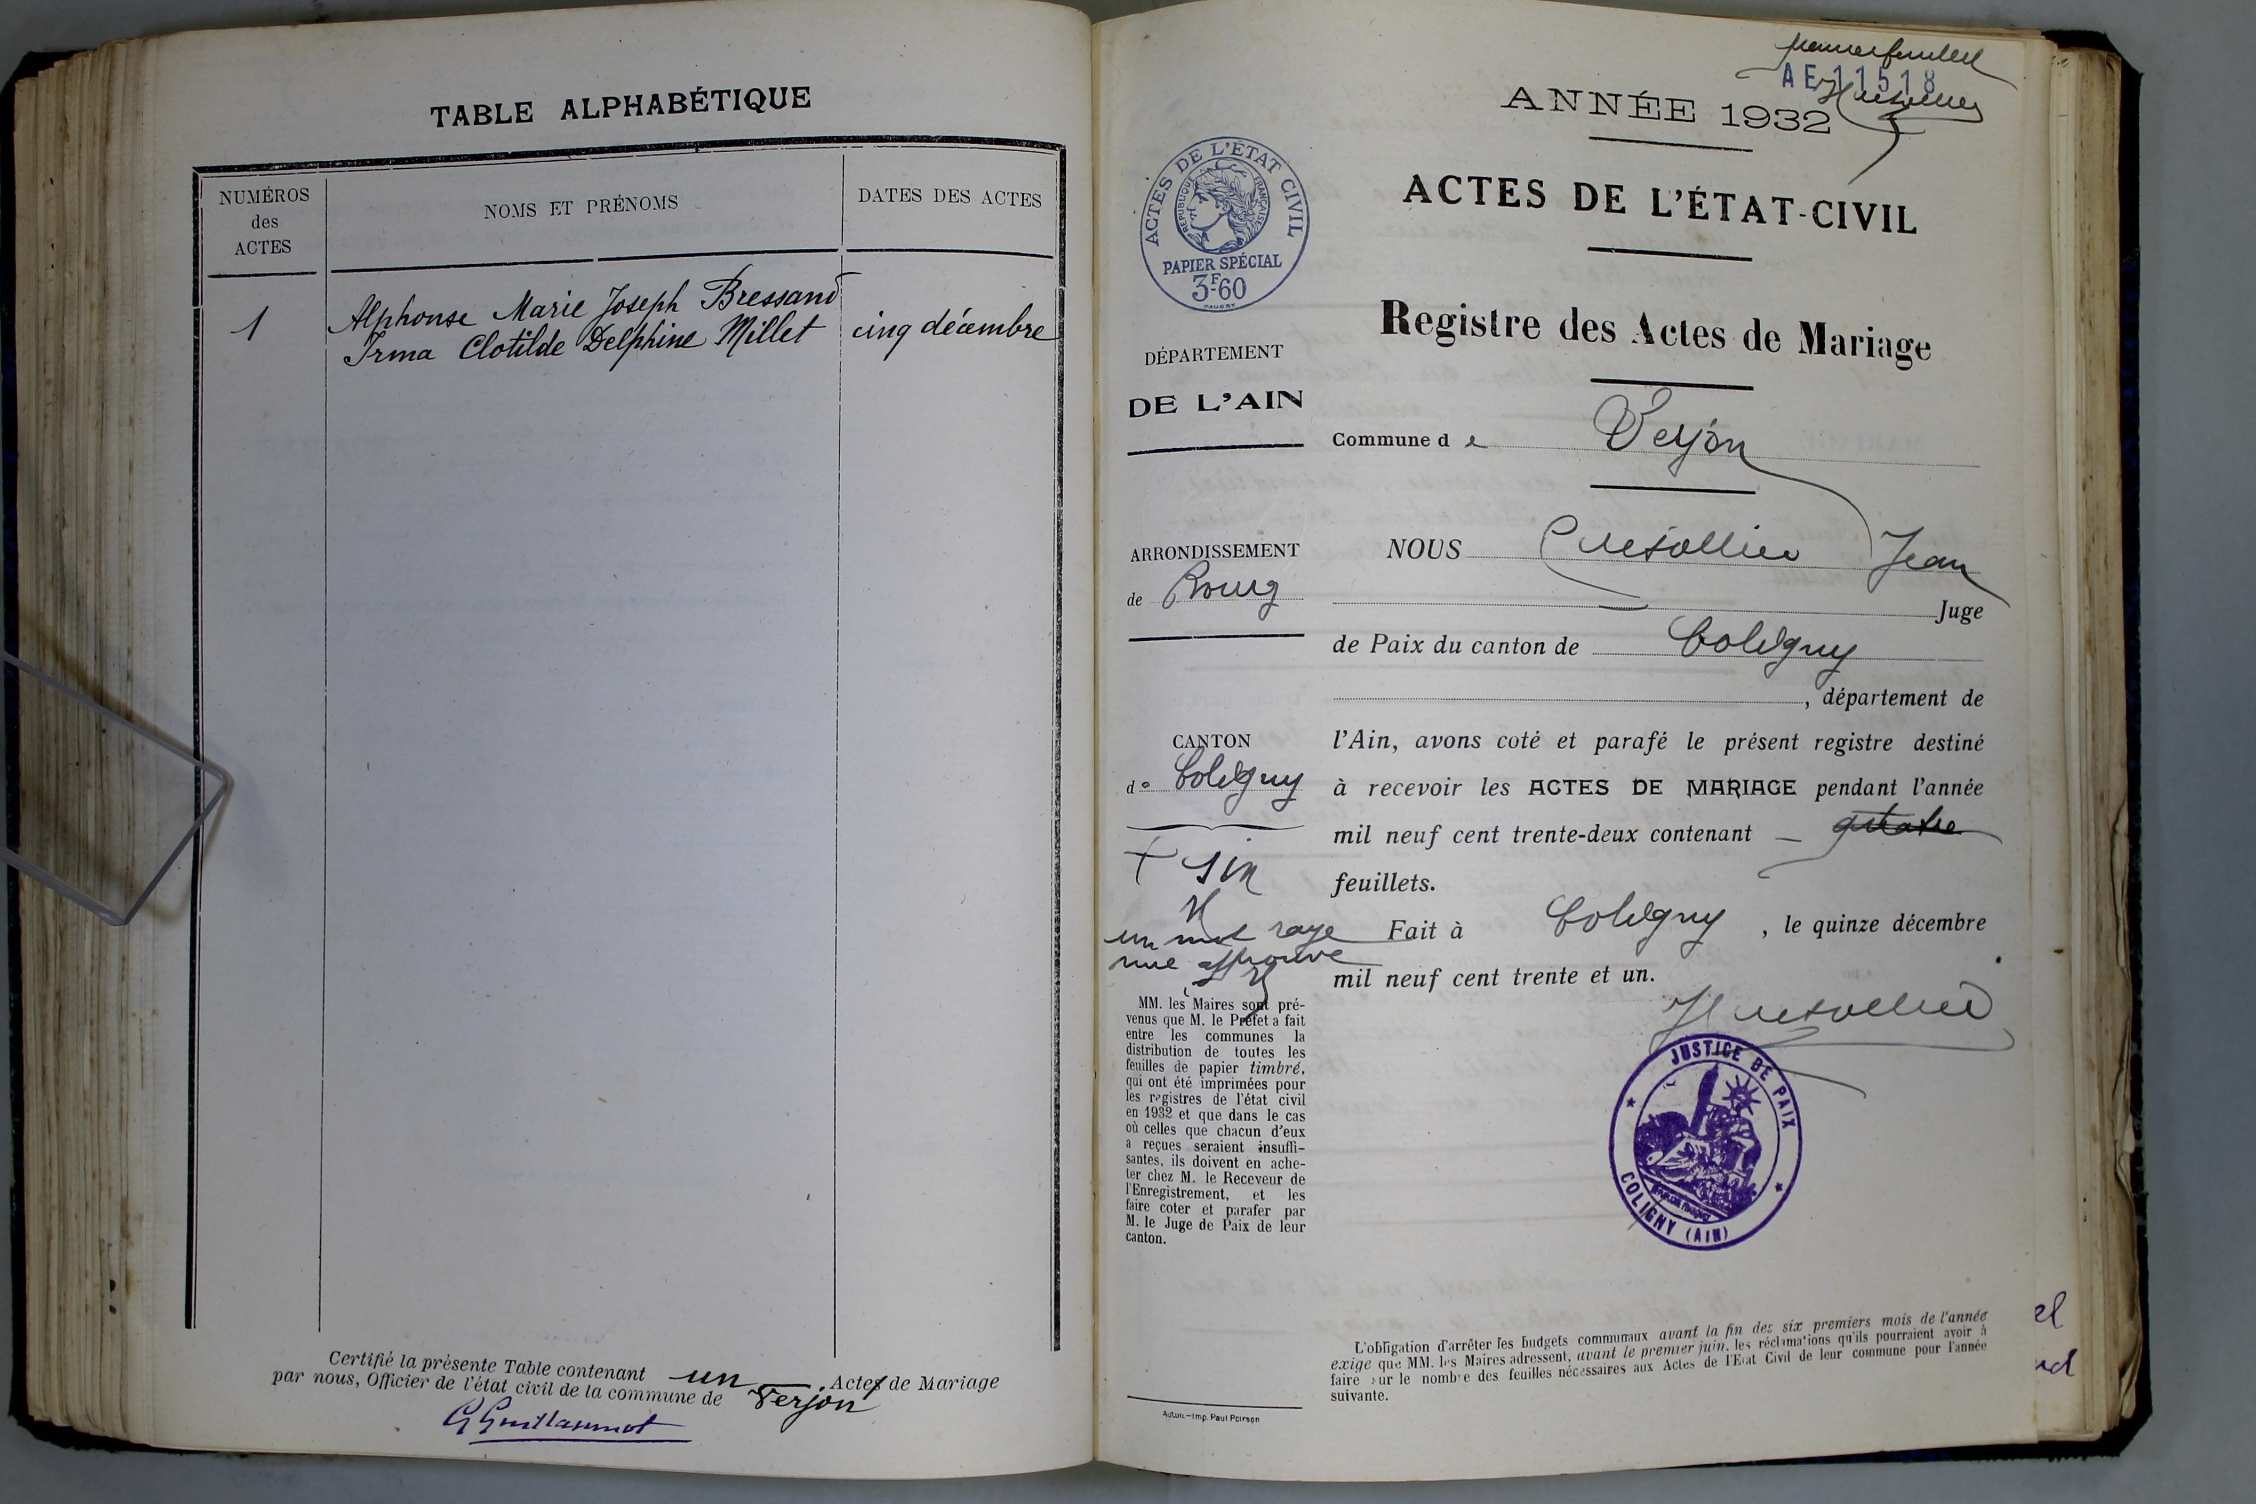 TABLE ALPHABÉTIQUE
NUMÉROS
des
ACTES
NOMS ET PRÉNOMS
DATES DES ACTES
1
Alphonse Marie Joseph Bressand
Irma Clotilde Delphine Millet
cinq décembre
Certifié la présente Table contenant un Actes de Mariage
par nous, Officier de l'état civil de la commune de Verjon
G Guillaumot
premier feuillet
AE 11518
ANNÉE 1932
ACTES DE L'ÉTAT-CIVIL
Registre des Actes de Mariage
ACTES DE L'ÉTAT CIVIL
RÉPUBLIQUE FRANÇAISE
PAPIER SPÉCIAL
3F.60
DÉPARTEMENT
DE L'AIN
Commune de Verjon
ARRONDISSEMENT
de Bourg
NOUS Jean
Juge
de Paix du canton de Coligny
, département de
CANTON
de Coligny
l'Ain, avons coté et parafé le présent registre destiné
à recevoir les ACTES DE MARIAGE pendant l'année
mil neuf cent trente-deux contenant — quatre
feuillets.
+ six
un mot rayé
nul approuvé
Fait à Coligny, le quinze décembre
mil neuf cent trente et un.
MM. les Maires sont pré-
venus que M. le Préfet a fait
entre les communes la
distribution de toutes les
feuilles de papier timbré,
qui ont été imprimées pour
les registres de l'état civil
en 1932 et que dans le cas
où celles que chacun d'eux
a reçues seraient insuffi-
santes, ils doivent en ache-
ter chez M. le Receveur de
l'Enregistrement, et les
faire coter et parafer par
M. le Juge de Paix de leur
canton.
JUSTICE DE PAIX
COLIGNY (AIN)
L'obligation d'arrêter les budgets communaux avant la fin des six premiers mois de l'année
exige que MM. les Maires adressent, avant le premier juin, les réclamations qu'ils pourraient avoir à
faire sur le nombre des feuilles nécessaires aux Actes de l'Etat Civil de leur commune pour l'année
suivante.
Autun.—Imp. Paul Poirson